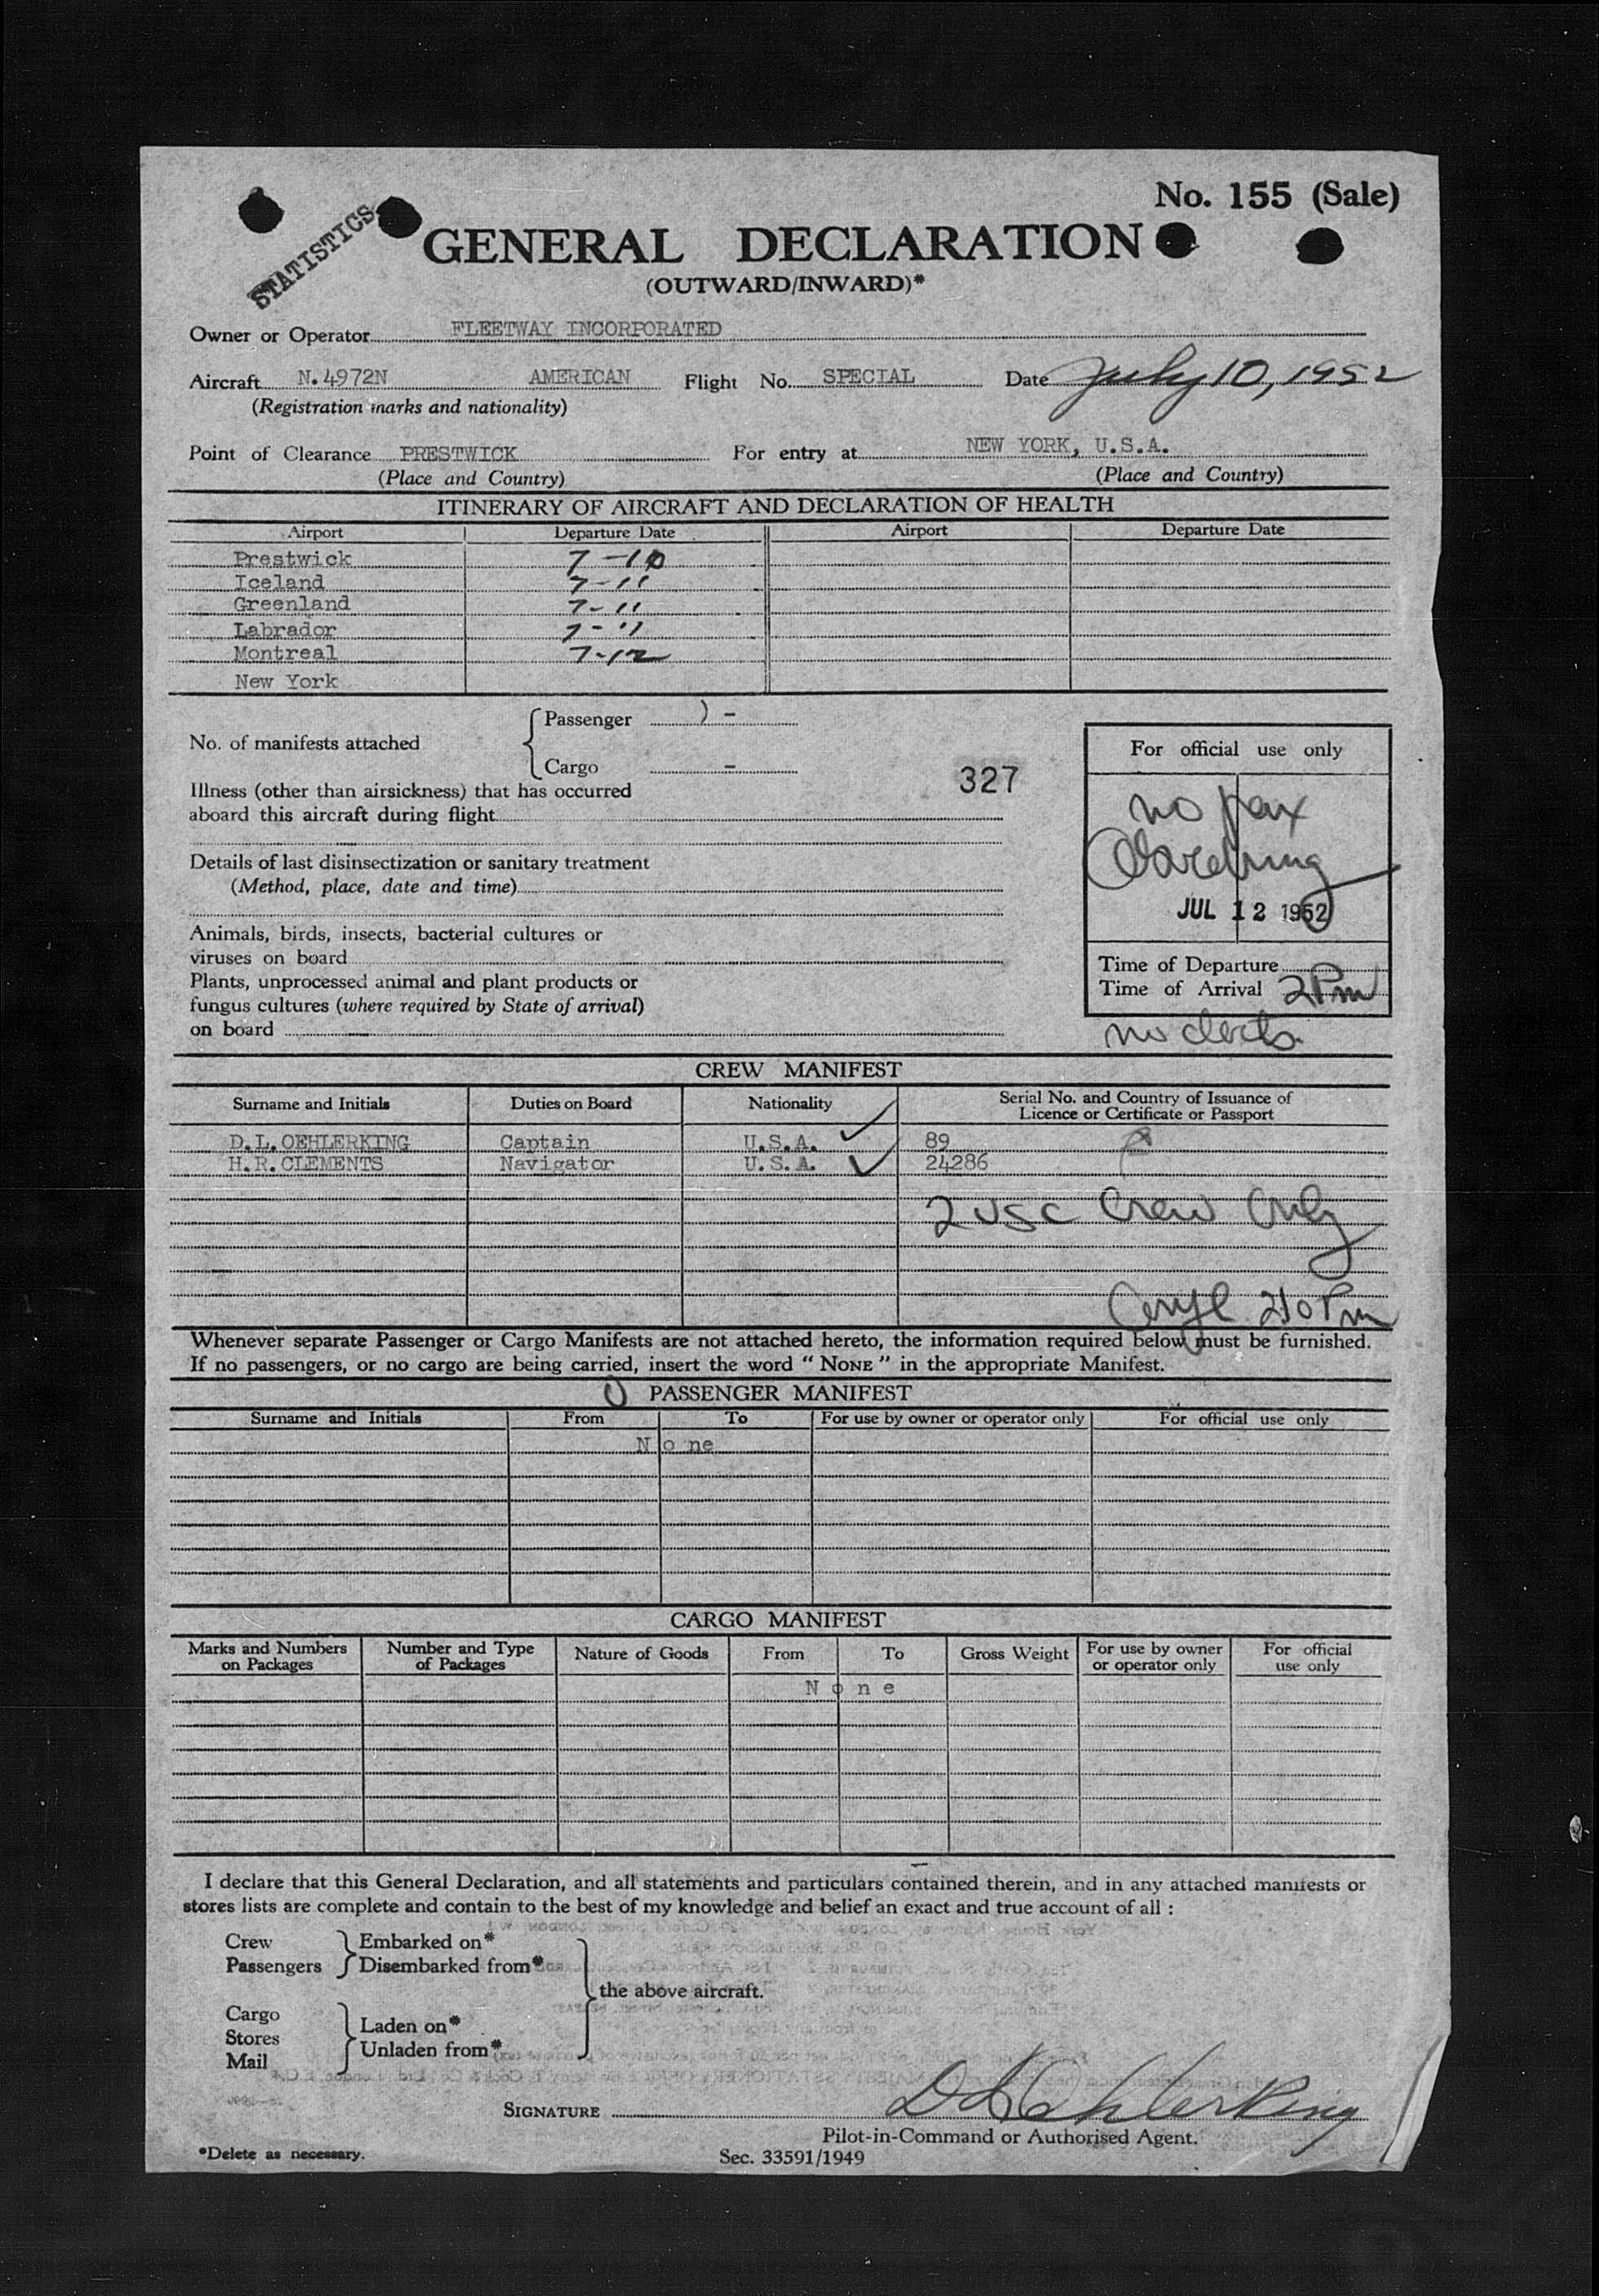 No. 155 (Sale)
STATISTICS
GENERAL DECLARATION
(OUTWARD/INWARD)*
Owner or Operator FLEETWAY INCORPORATED
Aircraft N.4972N AMERICAN Flight No. SPECIAL Date July 10, 1952
(Registration marks and nationality)
Point of Clearance PRESTWICK For entry at NEW YORK, U.S.A.
(Place and Country) (Place and Country)
ITINERARY OF AIRCRAFT AND DECLARATION OF HEALTH
Airport Departure Date Airport Departure Date
Prestwick 7-10
Iceland 7-11
Greenland 7-11
Labrador 7-11
Montreal 7-12
New York
No. of manifests attached
Passenger -
Cargo -
327
Illness (other than airsickness) that has occurred
aboard this aircraft during flight
Details of last disinsectization or sanitary treatment
(Method, place, date and time)
Animals, birds, insects, bacterial cultures or
viruses on board
Plants, unprocessed animal and plant products or
fungus cultures (where required by State of arrival)
on board
For official use only
no pax
JUL 12 1952
Time of Departure
Time of Arrival 2Pm
no
CREW MANIFEST
Surname and Initials Duties on Board Nationality Serial No. and Country of Issuance of
Licence or Certificate or Passport
D.L.OEHLERKING Captain U.S.A. 89
H.R.CLEMENTS Navigator U.S.A. 24286
2 USC Crew Only
210 Pm
Whenever separate Passenger or Cargo Manifests are not attached hereto, the information required below must be furnished.
If no passengers, or no cargo are being carried, insert the word "NONE" in the appropriate Manifest.
PASSENGER MANIFEST
Surname and Initials From To For use by owner or operator only For official use only
None
CARGO MANIFEST
Marks and Numbers on Packages Number and Type of Packages Nature of Goods From To Gross Weight For use by owner or operator only For official use only
None
I declare that this General Declaration, and all statements and particulars contained therein, and in any attached manifests or
stores lists are complete and contain to the best of my knowledge and belief an exact and true account of all :
Crew Embarked on*
Passengers Disembarked from*
the above aircraft.
Cargo
Stores Laden on*
Mail Unladen from*
SIGNATURE D L Oehlerking
Pilot-in-Command or Authorised Agent.
*Delete as necessary. Sec. 33591/1949